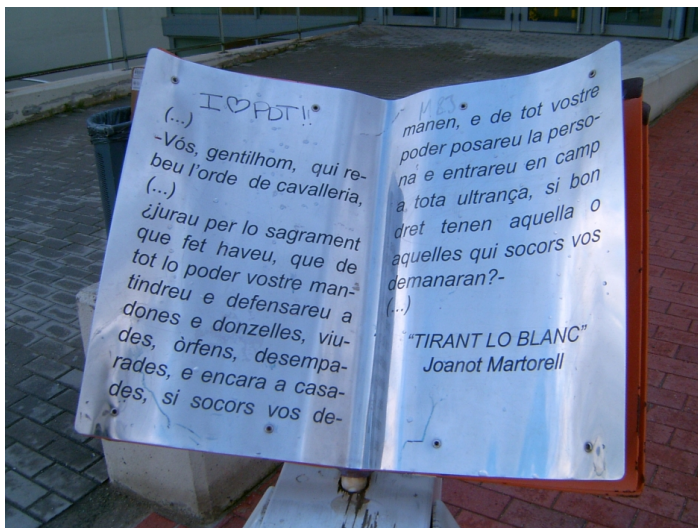 I ♡ PDT!!
(...)
-Vós, gentilhom, qui re-
beu l'orde de cavalleria,
(...)
¿jurau per lo sagrament
que fet haveu, que de
tot lo poder vostre man-
tindreu e defensareu a
dones e donzelles, viu-
des, òrfens, desempa-
rades, e encara a casa-
des, si socors vos de-
manen, e de tot vostre
poder posareu la perso-
na e entrareu en camp
a tota ultrança, si bon
dret tenen aquella o
aquelles qui socors vos
demanaran?-
(...)
“TIRANT LO BLANC”
Joanot Martorell